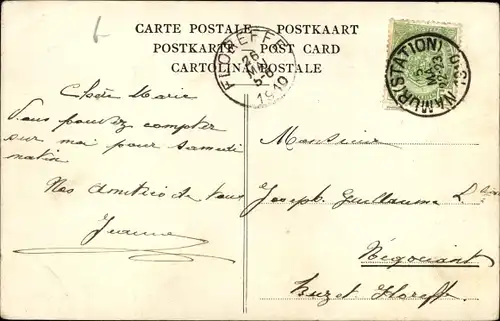 CARTE POSTALE - POSTKAART
POSTKARTE - POST CARD
CARTOLINA POSTALE
FLOREFFE
1910
NAMUR (STATION)
Chère Marie
Vous pouvez compter
sur moi pour Samedi
matin
Nos amitiés à tous
Jeanne
Monsieur
Joseph Guillaume
Négociant
Buzet Floreffe